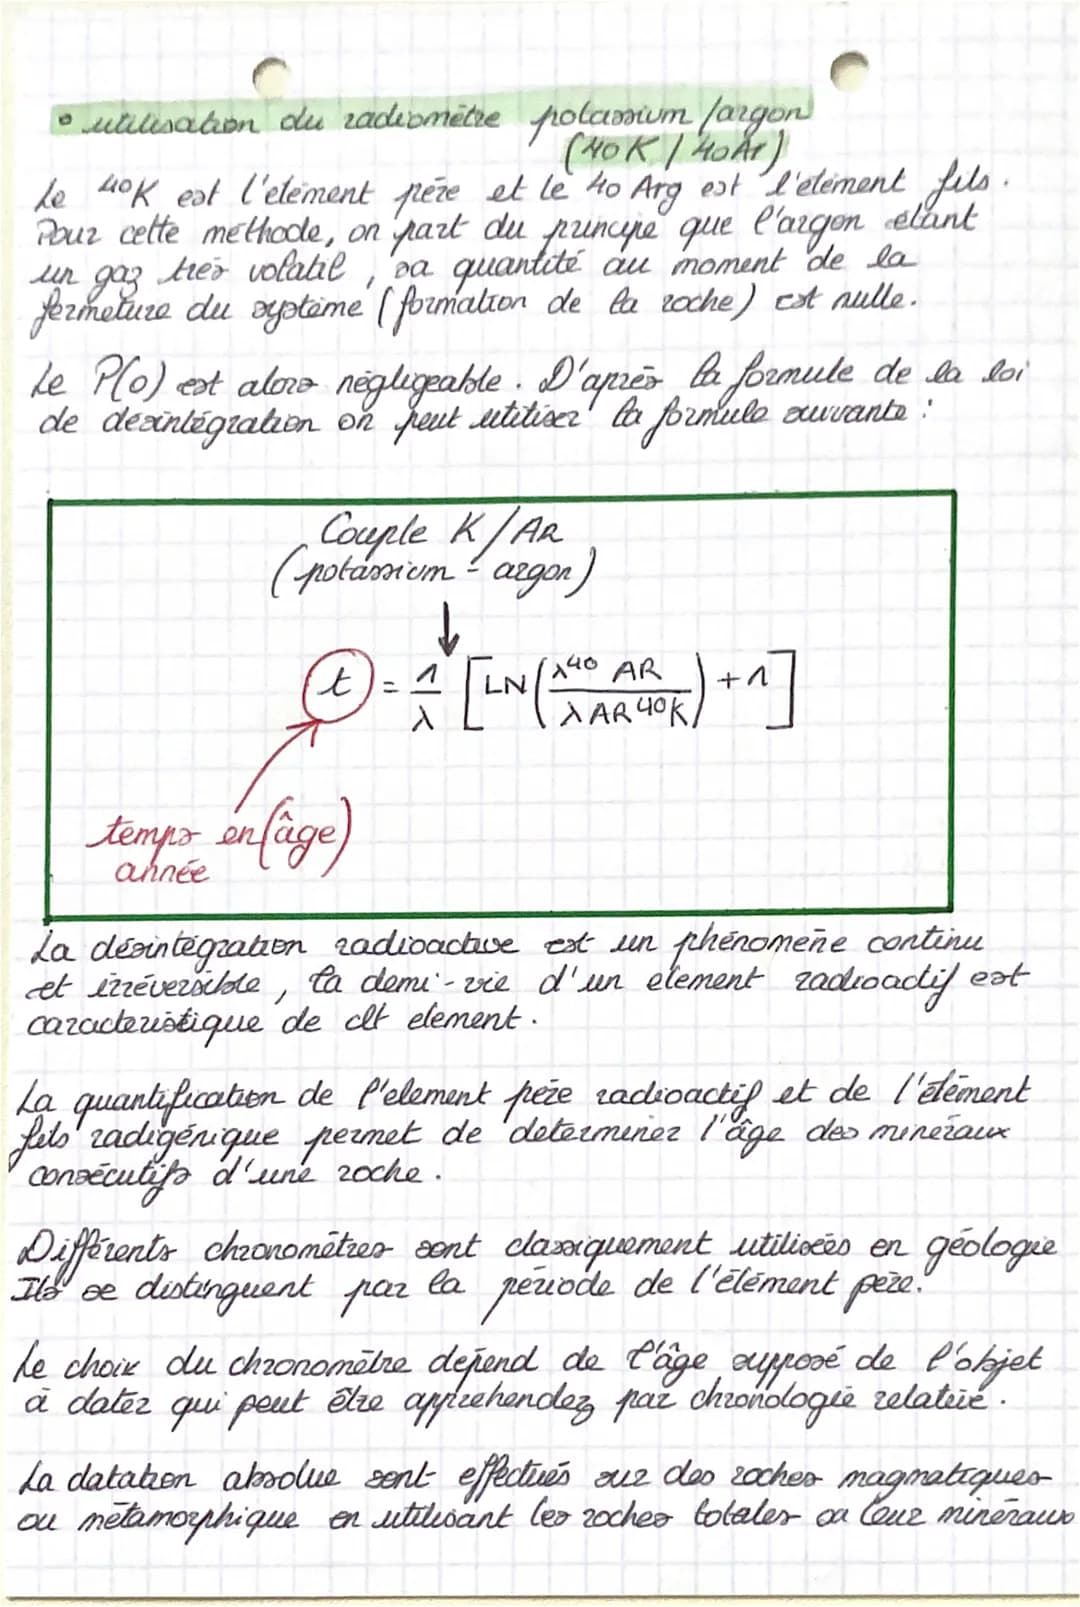 • utilisation du radiomètre potassium /argon
(40 K / 40 Ar)
Le 40K est l'élément père et le 40 Arg est l'élément fils.
Pour cette méthode, on part du principe que l'argon étant
un gaz très volatil, sa quantité au moment de la
fermeture du système (formation de la roche) est nulle.
Le P(0) est alors négligeable. D'après la formule de la loi
de désintégration on peut utiliser la formule suivante :
Couple K/AR
(potassium - argon)
↓
t = 1/λ [LN(λ40 AR / λ AR 40K) + 1]
temps en (âge)
année
La désintégration radioactive est un phénomène continu
et irréversible, la demi-vie d'un élement radioactif est
caractéristique de cet element.
La quantification de l'element père radioactif et de l'élément
fils radigénique permet de determiner l'âge des minéraux
consécutifs d'une roche.
Différents chronomètres sont classiquement utilisées en géologie
Ils se distinguent par la période de l'élément père.
Le choix du chronomètre dépend de l'âge supposé de l'objet
à dater qui peut être apprehender par chronologie relative.
La datation absolue sont effectués sur des roches magmatiques
ou métamorphique en utilisant les roches totales ou leur minéraux